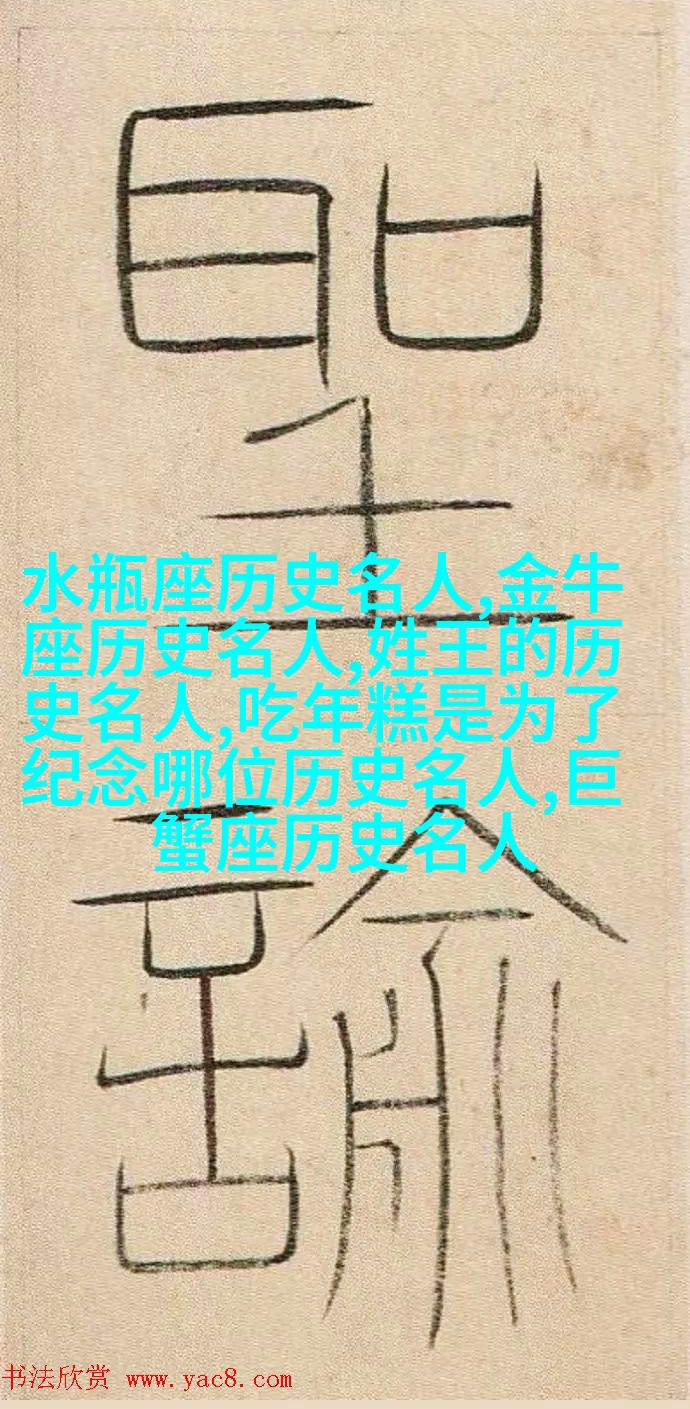 聖
諭
水瓶座历史名人,金牛
座历史名人,姓王的历
史名人,吃年糕是为了
纪念哪位历史名人,巨
蟹座历史名人
书法欣赏 www.yac8.com